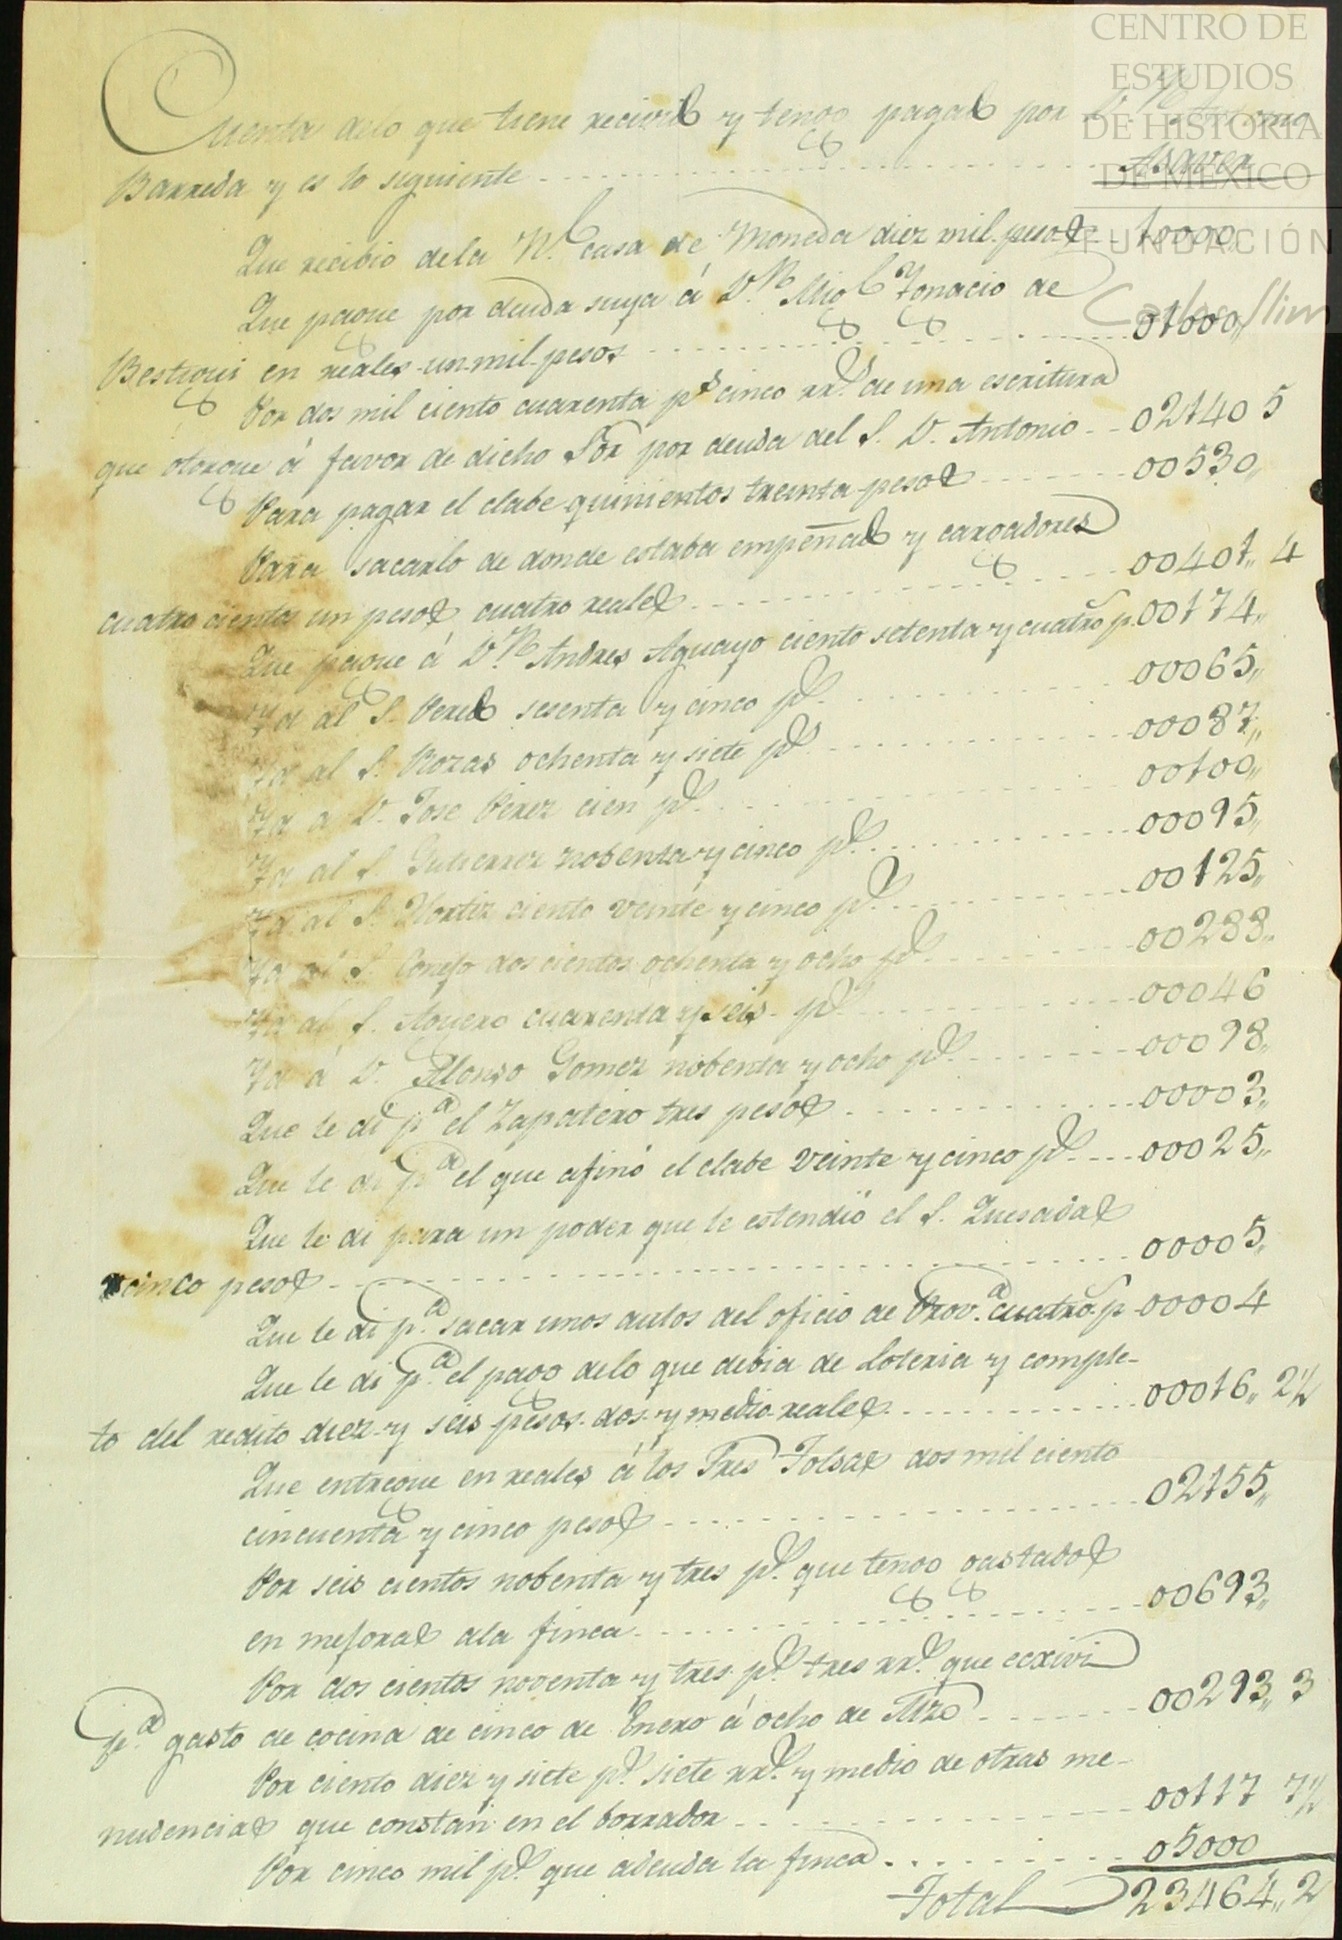 CENTRO DE
ESTUDIOS
DE HISTORIA
DE MÉXICO
FUNDACIÓN
Carlos Slim
Cuenta delo que tiene recivido y tengo pagado por
Barreda y es lo siguiente Asaver
Que recibio dela R.l casa de Moneda diez mil pesos 10000,,
Que pague por deuda suya á D.n Mig.l Ygnacio de
Bestigui en reales un mil pesos 01000,,
Por dos mil ciento cuarenta p.s cinco rr.s de una escritura
que otorgue á favor de dicho Sor por deuda del S. D. Antonio 02140 5
Para pagar el clabe quinientos treinta pesos 00530,,
Para sacarlo de donde estaba empeñado y cargadores
cuatro cientos un pesos cuatro reales 00401,, 4
Que pague á D.n Andres Aguayo ciento setenta y cuatro p.s 00174,,
Yd al S. Perez sesenta y cinco p.s 00065,,
Yd al S. Rozas ochenta y siete p.s 00087,,
Yd a D. Jose Perez cien p.s 00100,,
Yd al S. Gutierrez nobenta y cinco p.s 00095,,
Yd al S. Hortiz ciento veinte y cinco p.s 00125,,
Yd al S. Conejo dos cientos ochenta y ocho p.s 00288,,
Yd al S. Aguero cuarenta y seis p.s 00046
Yd á D. Alonso Gomez nobenta y ocho p.s 00098,,
Que le di p.a el Zapatero tres pesos 00003,,
Que le di p.a el que afinó el clabe veinte y cinco p.s 00025,,
Que le di para un poder que le estendió el S. Quesadas
cinco pesos 00005,,
Que le di p.a sacar unos autos del oficio de Prov.a cuatro p.s 00004
Que le di p.a el pago delo que debia de Loteria y comple-
to del redito diez y seis pesos dos y medio reales 00016,, 2½
Que entregue en reales á los Sres Tolsas dos mil ciento
cincuenta y cinco pesos 02155,,
Por seis cientos nobenta y tres p.s que tengo gastados
en mejoras ala finca 00693,,
Por dos cientos noventa y tres p.s tres rr.s que ecxivi
p.a gasto de cocina de cinco de Enero á ocho de Mzo 00293,, 3
Por ciento diez y siete p.s siete rr.s y medio de otras me-
nudencias que constan en el borrador 00117 7½
Por cinco mil p.s que adeuda la finca 05000
Total 23464,, 2